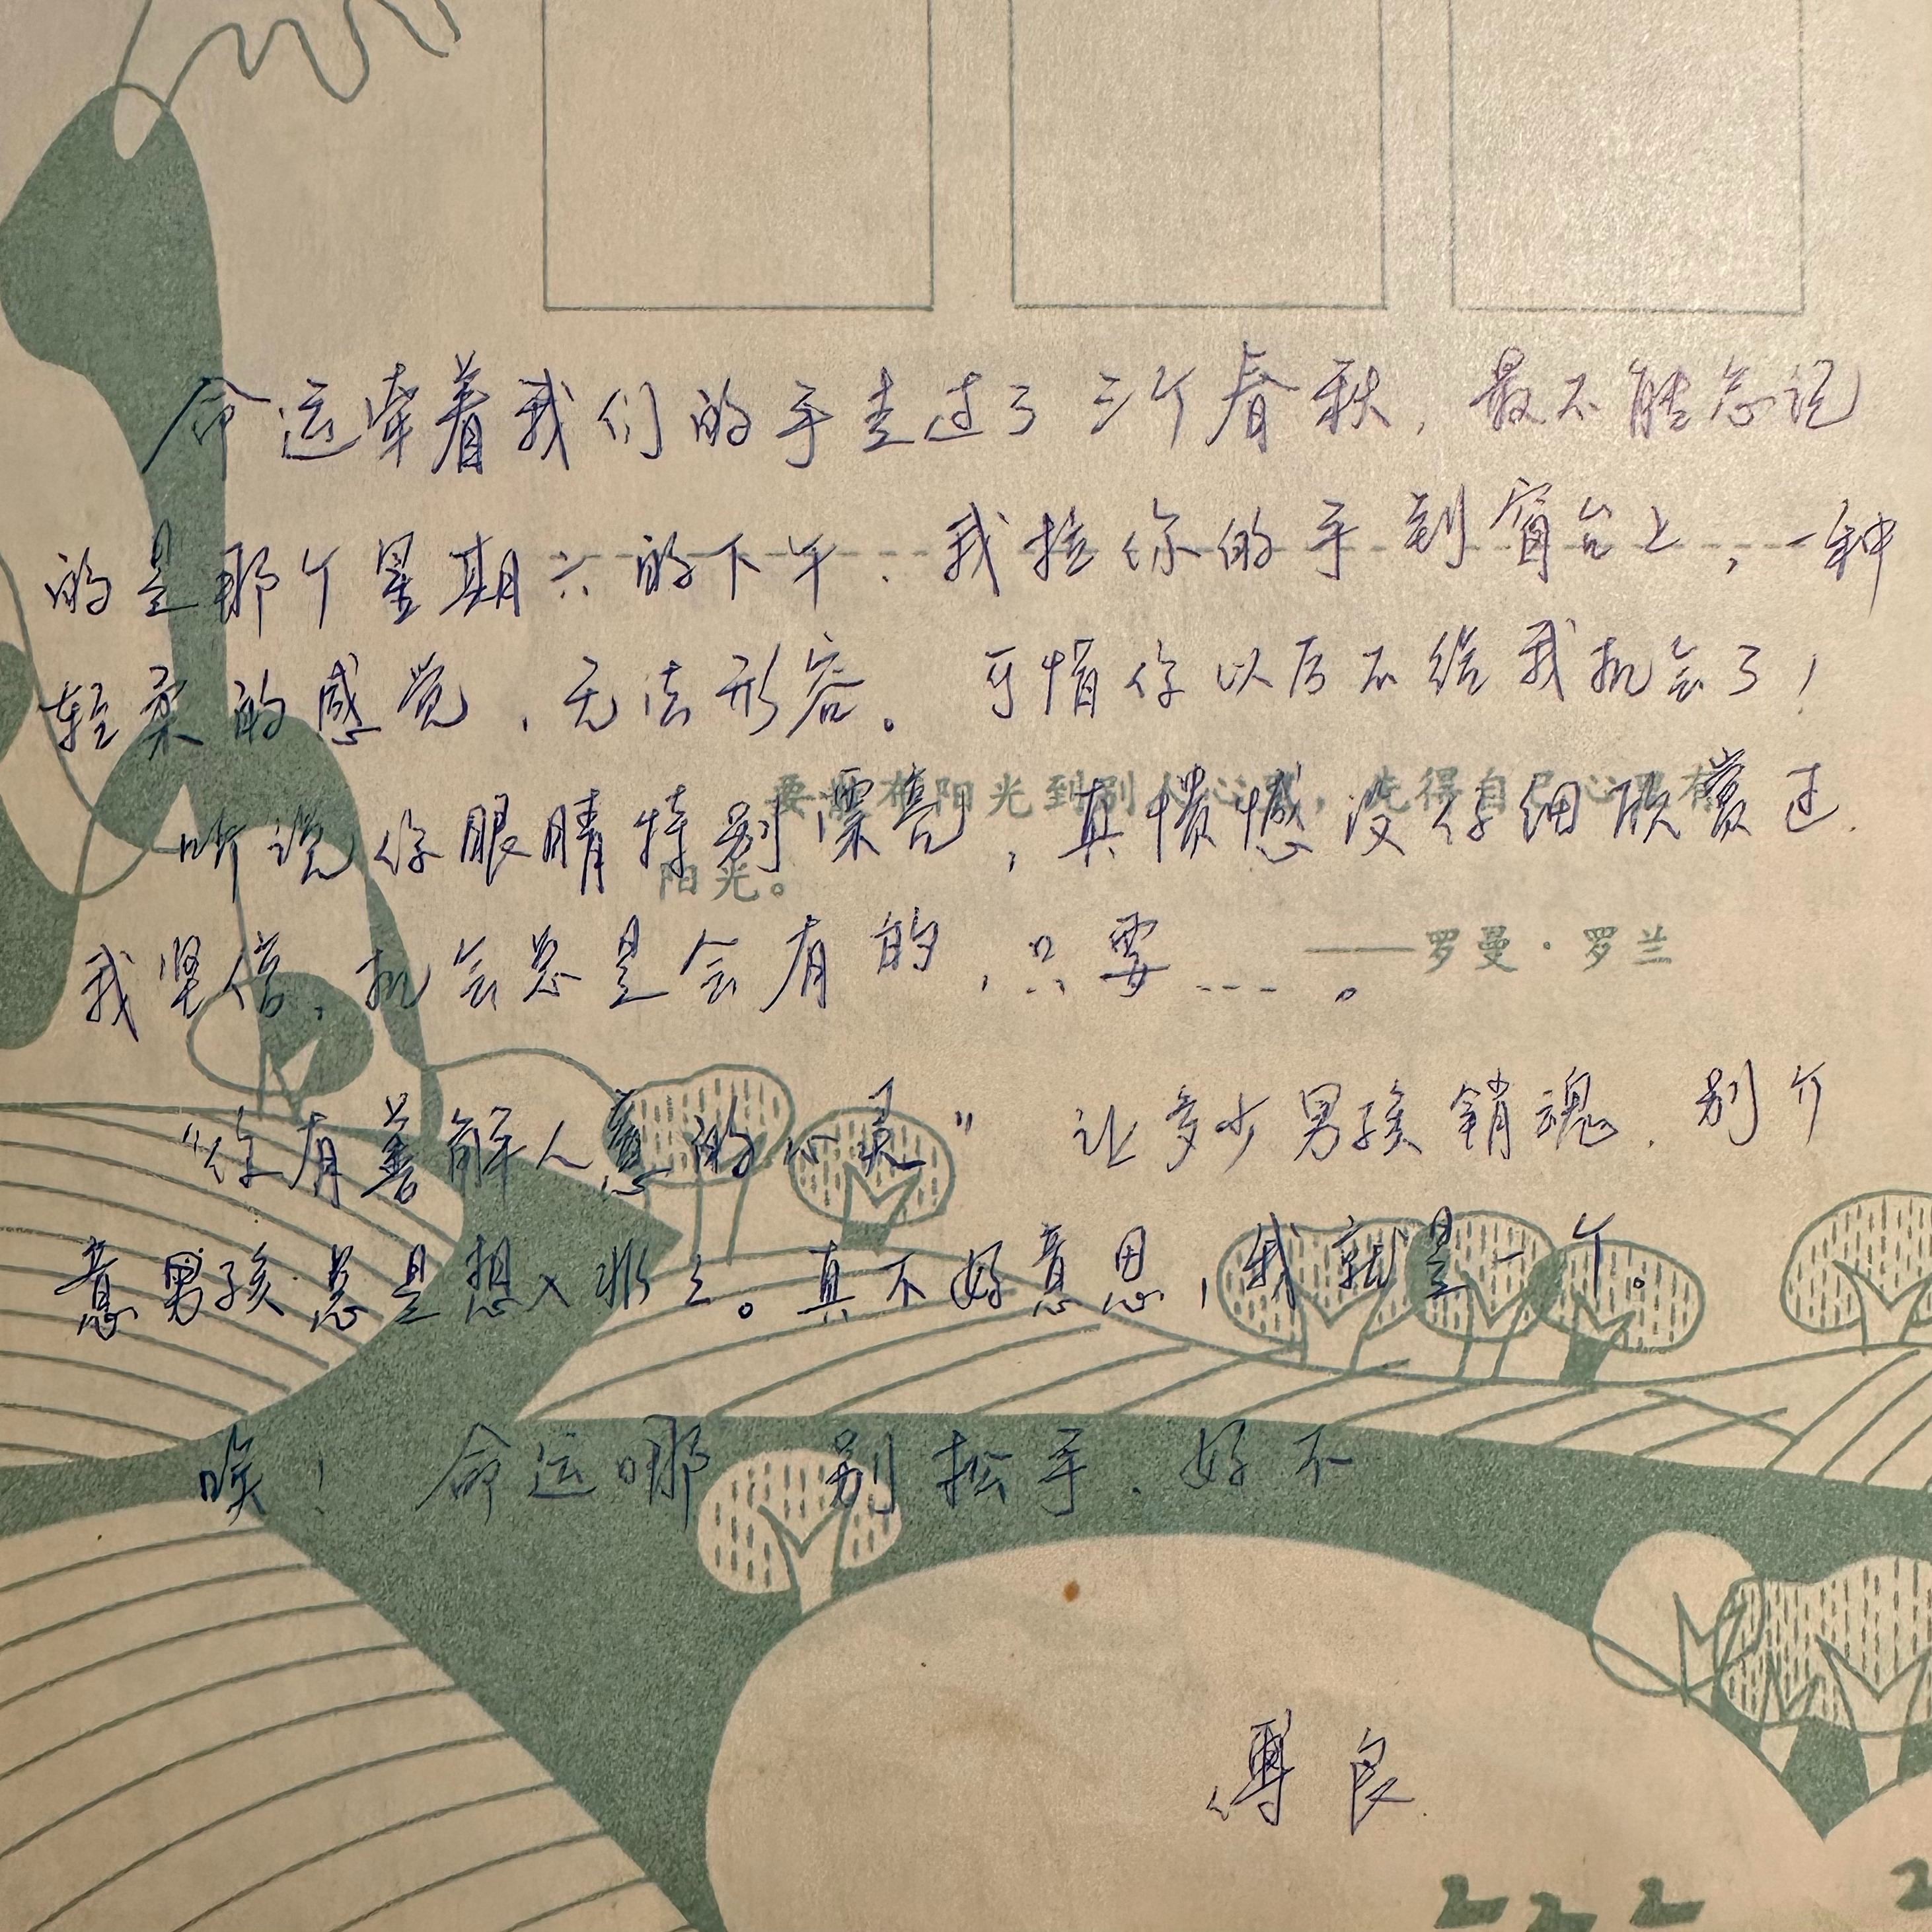 命运牵着我们的手走过了三个春秋，最不能忘记
的是那个星期六的下午．我拉你的手到窗台上，一种
轻柔的感觉，无法形容。可惜你以后不给我机会了！
要散布阳光到别人心里，先得自己心里有
听说你眼睛特别漂亮，真愤憾没仔细欣赏过．
阳光。
我坚信，机会总是会有的，只要……。
——罗曼·罗兰
“你有善解人意的心灵” 让多少男孩销魂．别介
意男孩总是想入非非。真不好意思，我就是一个。
唉！ 命运哪 别松手．好不
良